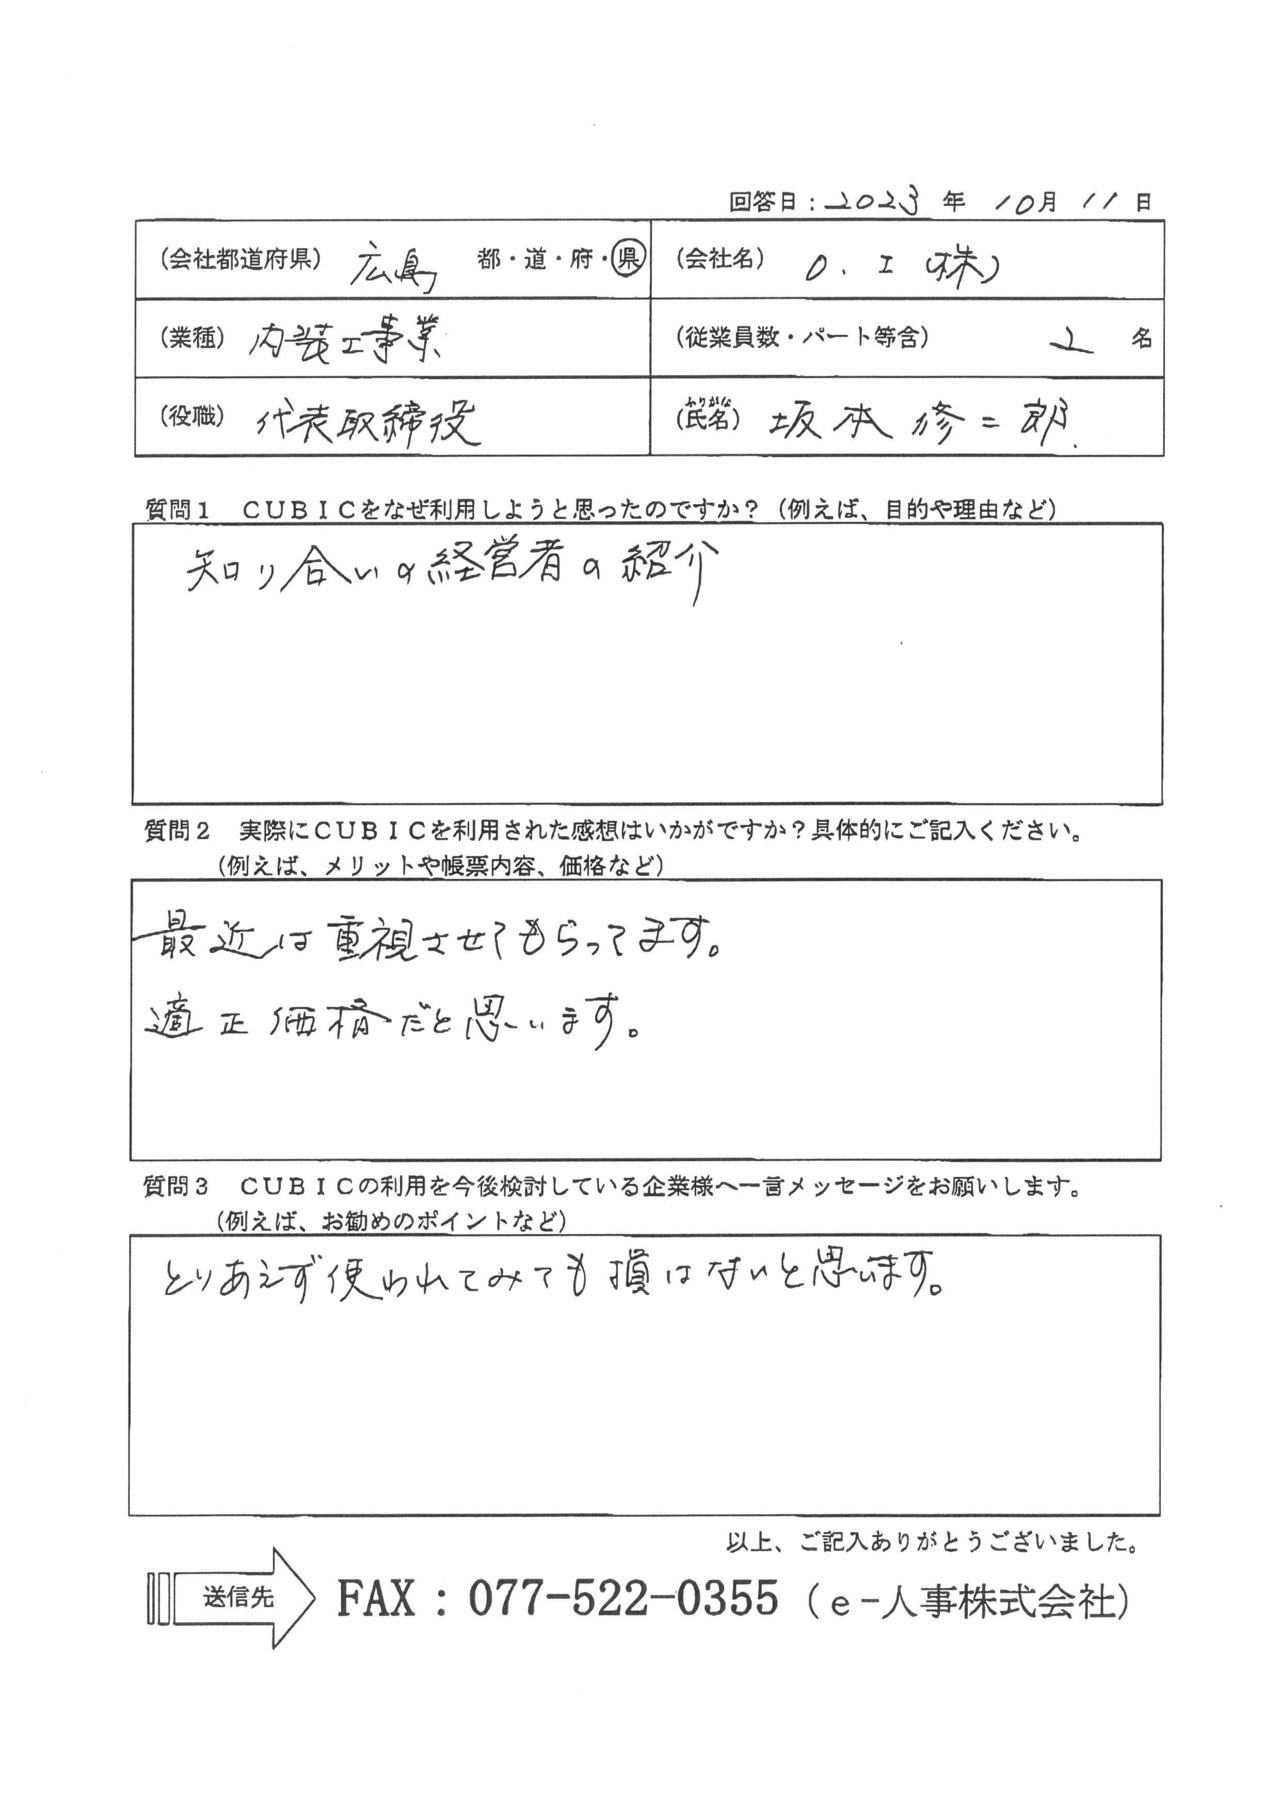 回答日：2023年 10月 11日
（会社都道府県） 広島 都・道・府・県 （会社名） O.I（株）
（業種） 内装工事業 （従業員数・パート等含） 2 名
（役職） 代表取締役 （氏名） ふりがな 坂本修二郎
質問１　ＣＵＢＩＣをなぜ利用しようと思ったのですか？（例えば、目的や理由など）
知り合いの経営者の紹介
質問２　実際にＣＵＢＩＣを利用された感想はいかがですか？具体的にご記入ください。
（例えば、メリットや帳票内容、価格など）
最近は重視させてもらってます。
適正価格だと思います。
質問３　ＣＵＢＩＣの利用を今後検討している企業様へ一言メッセージをお願いします。
（例えば、お勧めのポイントなど）
とりあえず使われてみても損はないと思います。
以上、ご記入ありがとうございました。
送信先 FAX：077-522-0355（ｅ-人事株式会社）